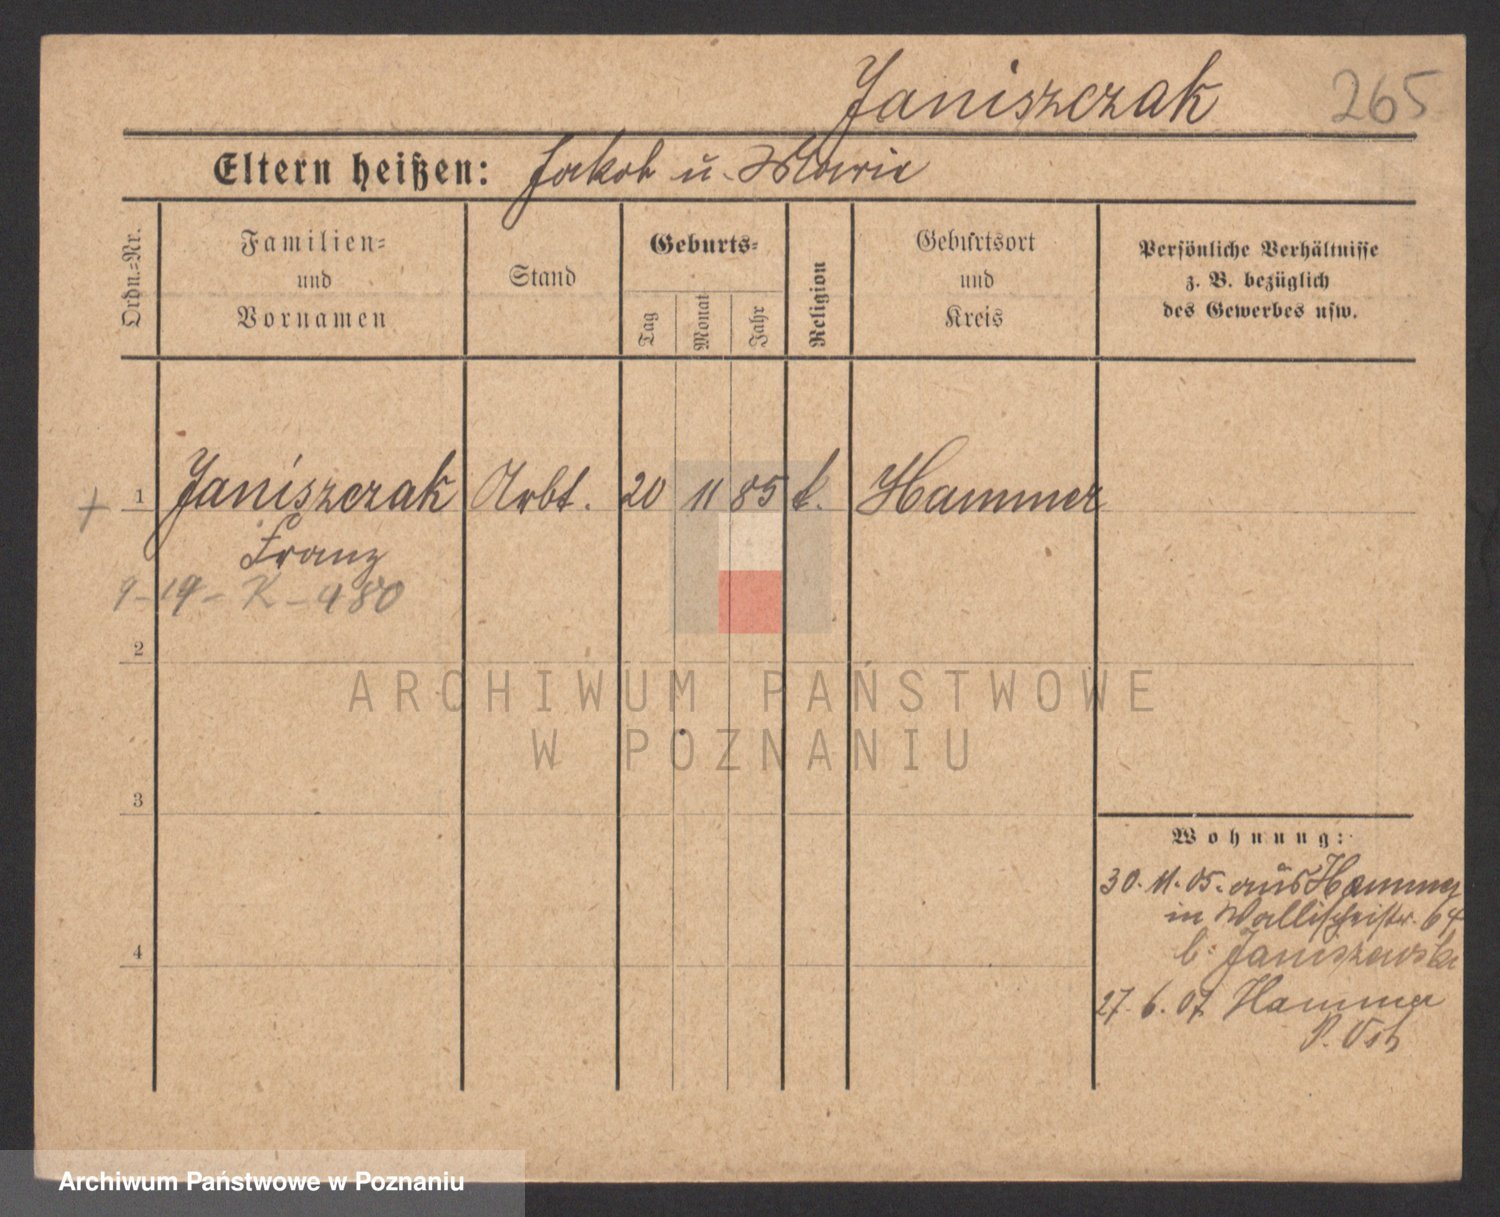 Janiszczak 265
Eltern heißen: Jakob u. Marie
Ordn.=Nr.
Familien=
und
Vornamen
Stand
Geburts=
Tag
Monat
Jahr
Religion
Geburtsort
und
Kreis
Persönliche Verhältnisse
z. B. bezüglich
des Gewerbes usw.
+ 1 Janiszczak Arbt. 20 11 85 k. Hammer
Franz
9-19-K-980
2
ARCHIWUM PAŃSTWOWE
W POZNANIU
3
Wohnung:
30. 11. 05. aus Hammer
in Wallischeistr. 64
b. Janiszewska
4
27. 6. 07 Hammer
P. Ost
Archiwum Państwowe w Poznaniu